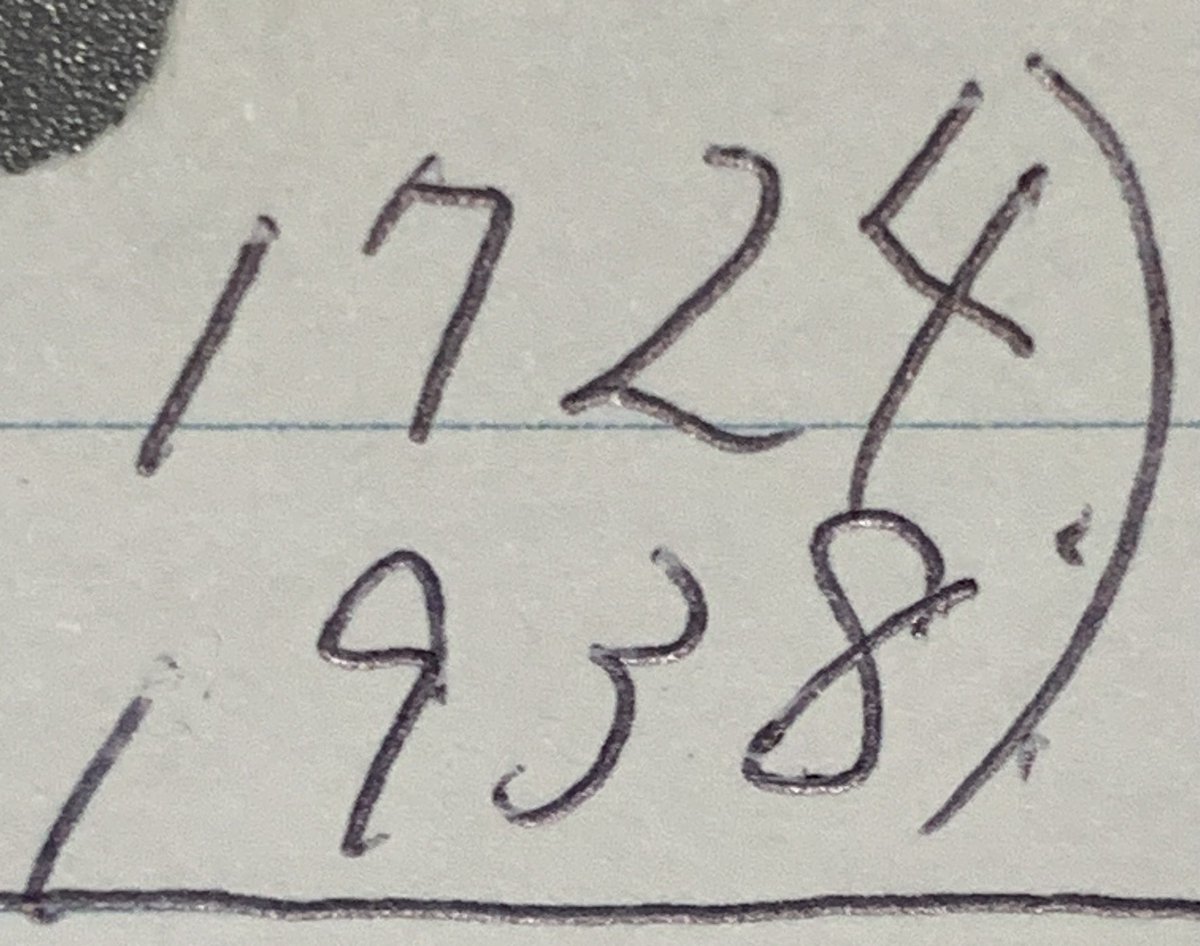 1724)
1938